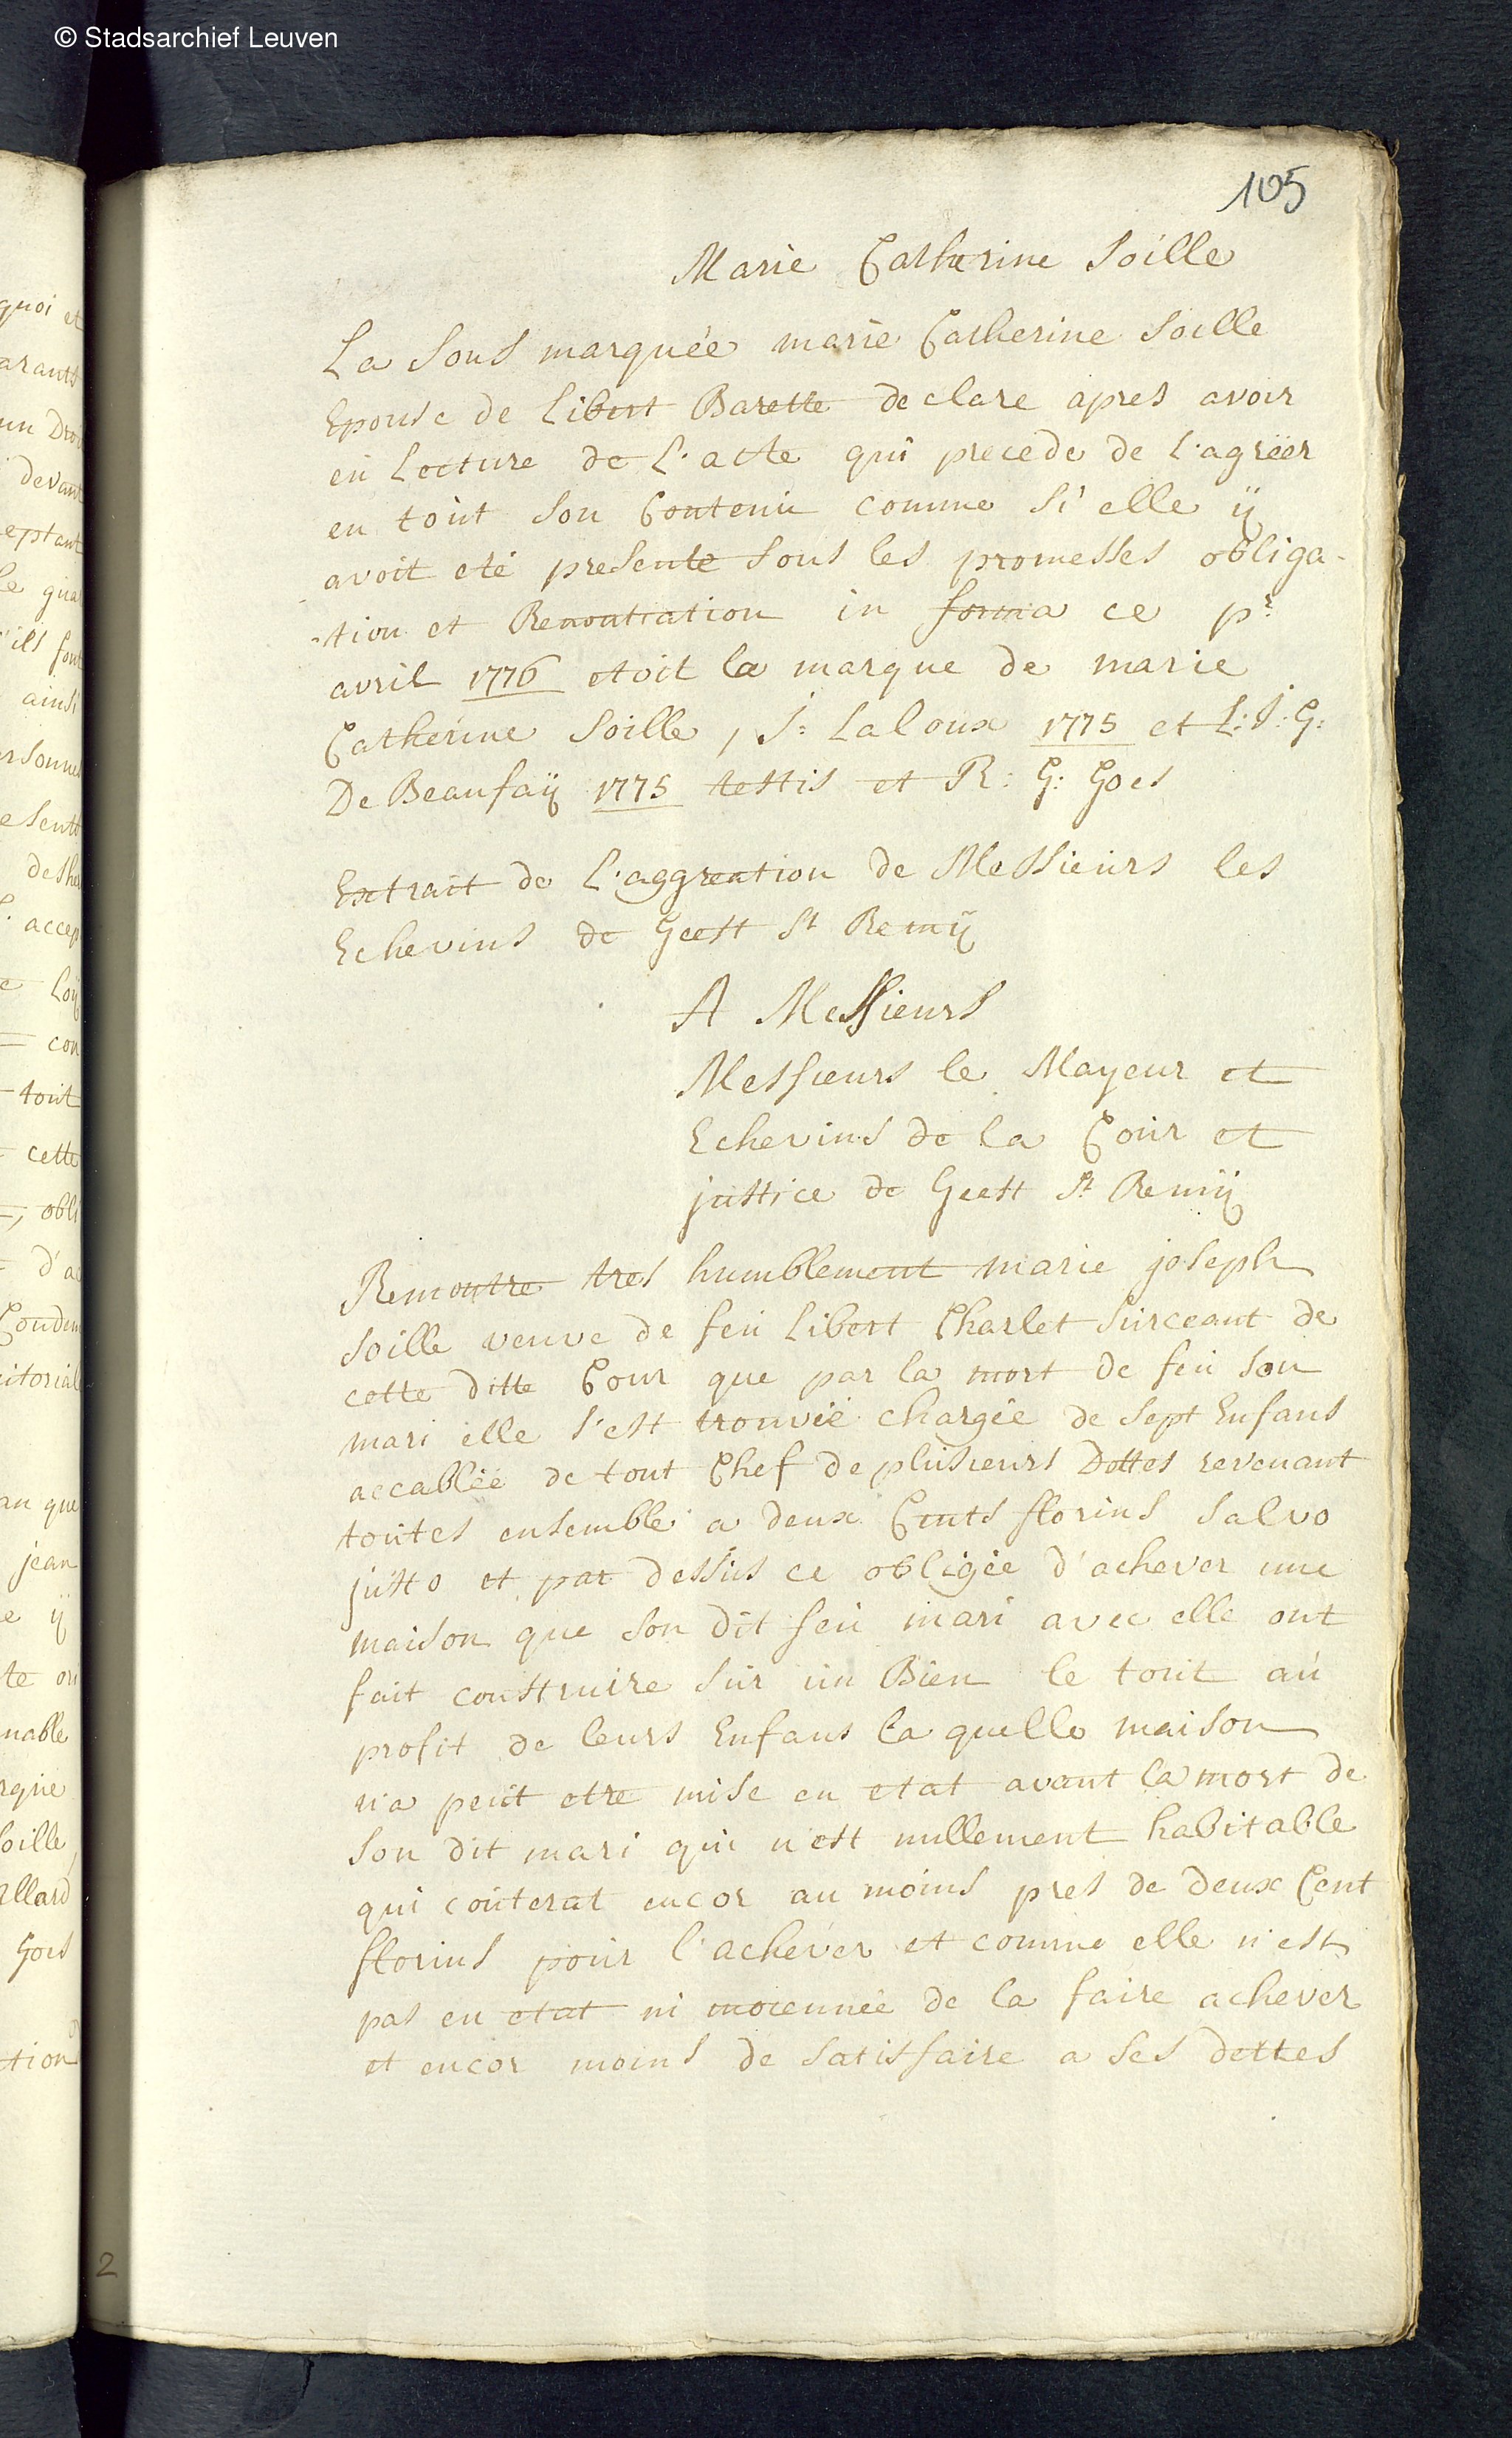 © Stadsarchief Leuven
105
Marie Catherine Soille
La Sous marquée marie Catherine Soille
Epouse de Libert Barette declare apres avoir
eu Lecture de L'acte qui precede de L'agréer
en tout Son Contenu comme Si elle ÿ
avoit eté presente Sous les promesses obliga-
-tion et Renontiation in forma ce pr
avril 1776 etoit la marque de marie
Catherine Soille, J: Laloux 1775 et L: J: G:
De Beaufaÿ 1775 testis et R: G: Goes
Extrait de L'aggreation de Messieurs les
Echevins de Geest St Remÿ
A Messieurs
Messieurs le Mayeur et
Echevins de la Cour et
justice de Geest St Remÿ
Remontre tres humblement marie joseph
Soille veuve de feu Libert Charlet Surceant de
cette ditte Cour que par la mort de feu Son
mari elle S'est trouvée chargée de Sept Enfans
accablée de tout Chef de plusieurs Dettes revenant
toutes ensemble a deux Cents florins Salvo
justo et par dessus ce obligée d'achever une
maison que Son dit feu mari avec elle ont
fait construire Sur un Bien le tout au
profit de leurs Enfans la quelle maison
n'a peut etre mise en etat avant la mort de
Son dit mari qui n'est nullement habitable
qui couterat encor au moins pres de deux Cent
florins pour l'achever et comme elle n'est
pas en etat ni moiennée de la faire achever
et encor moins de Satisfaire a Ses dettes
2